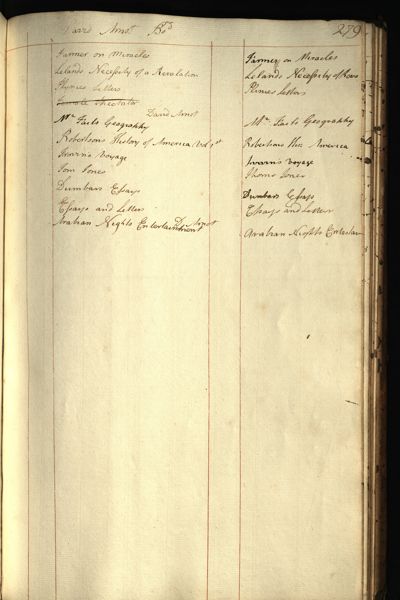 David Arnot Bo^d 279
Farmer on Miracles
Lelands Necessity of a Revelation
Plinies Letters
Female Spectator
David Arnot
M^rs Facts Geography
Robertsons History of America Vol 1^st
Irwin's Voyage
Tom Jones
Dunbars Essays
Essays and Letters
Arabian Nights Entertainment D Arnot
Farmer on Miracles
Lelands Necessity of Reve
Plinies Letters
Geography
Robertsons His: America
Irwins Voyage
Thoms Jones
Dumbars Essays
Essays and Letters
Arabian Nights Entertain